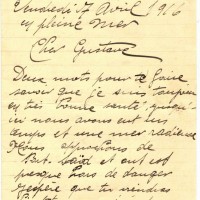 Vendredi 17 Avril 1916
en pleine mer
Cher Gustave
Deux mots pour te faire
savoir que je suis toujours
en très bonne santé jusqu'
ici nous avons eu un
temps et une mer radieuse
Nous approchons de
Port Saïd et on est
presque hors de danger
J'espère que tu viendras